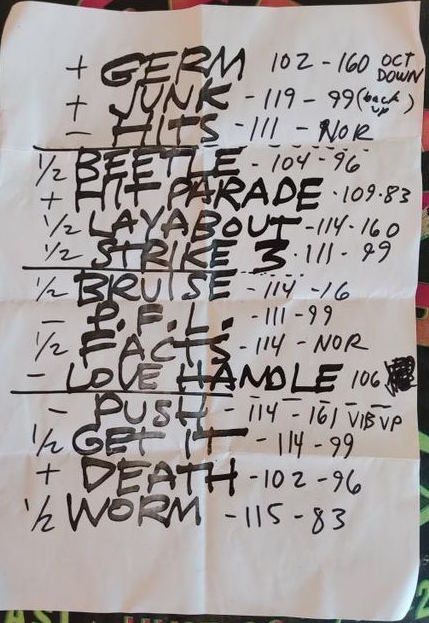 + GERM 102 - 160 OCT DOWN
+ JUNK - 119 - 99 (back up)
- HITS - 111 - NOR
1/2 BEETLE - 104 - 96
+ HIT PARADE - 109 - 83
1/2 LAYABOUT - 114 - 160
1/2 STRIKE 3 - 111 - 99
1/2 BRUISE - 114 - 16
- P.F.L. - 111 - 99
1/2 FACTS - 114 - NOR
- LOVE HANDLE 106
- PUSH - 114 - 161 VIB VP
1/2 GET IT - 114 - 99
+ DEATH - 102 - 96
1/2 WORM - 115 - 83